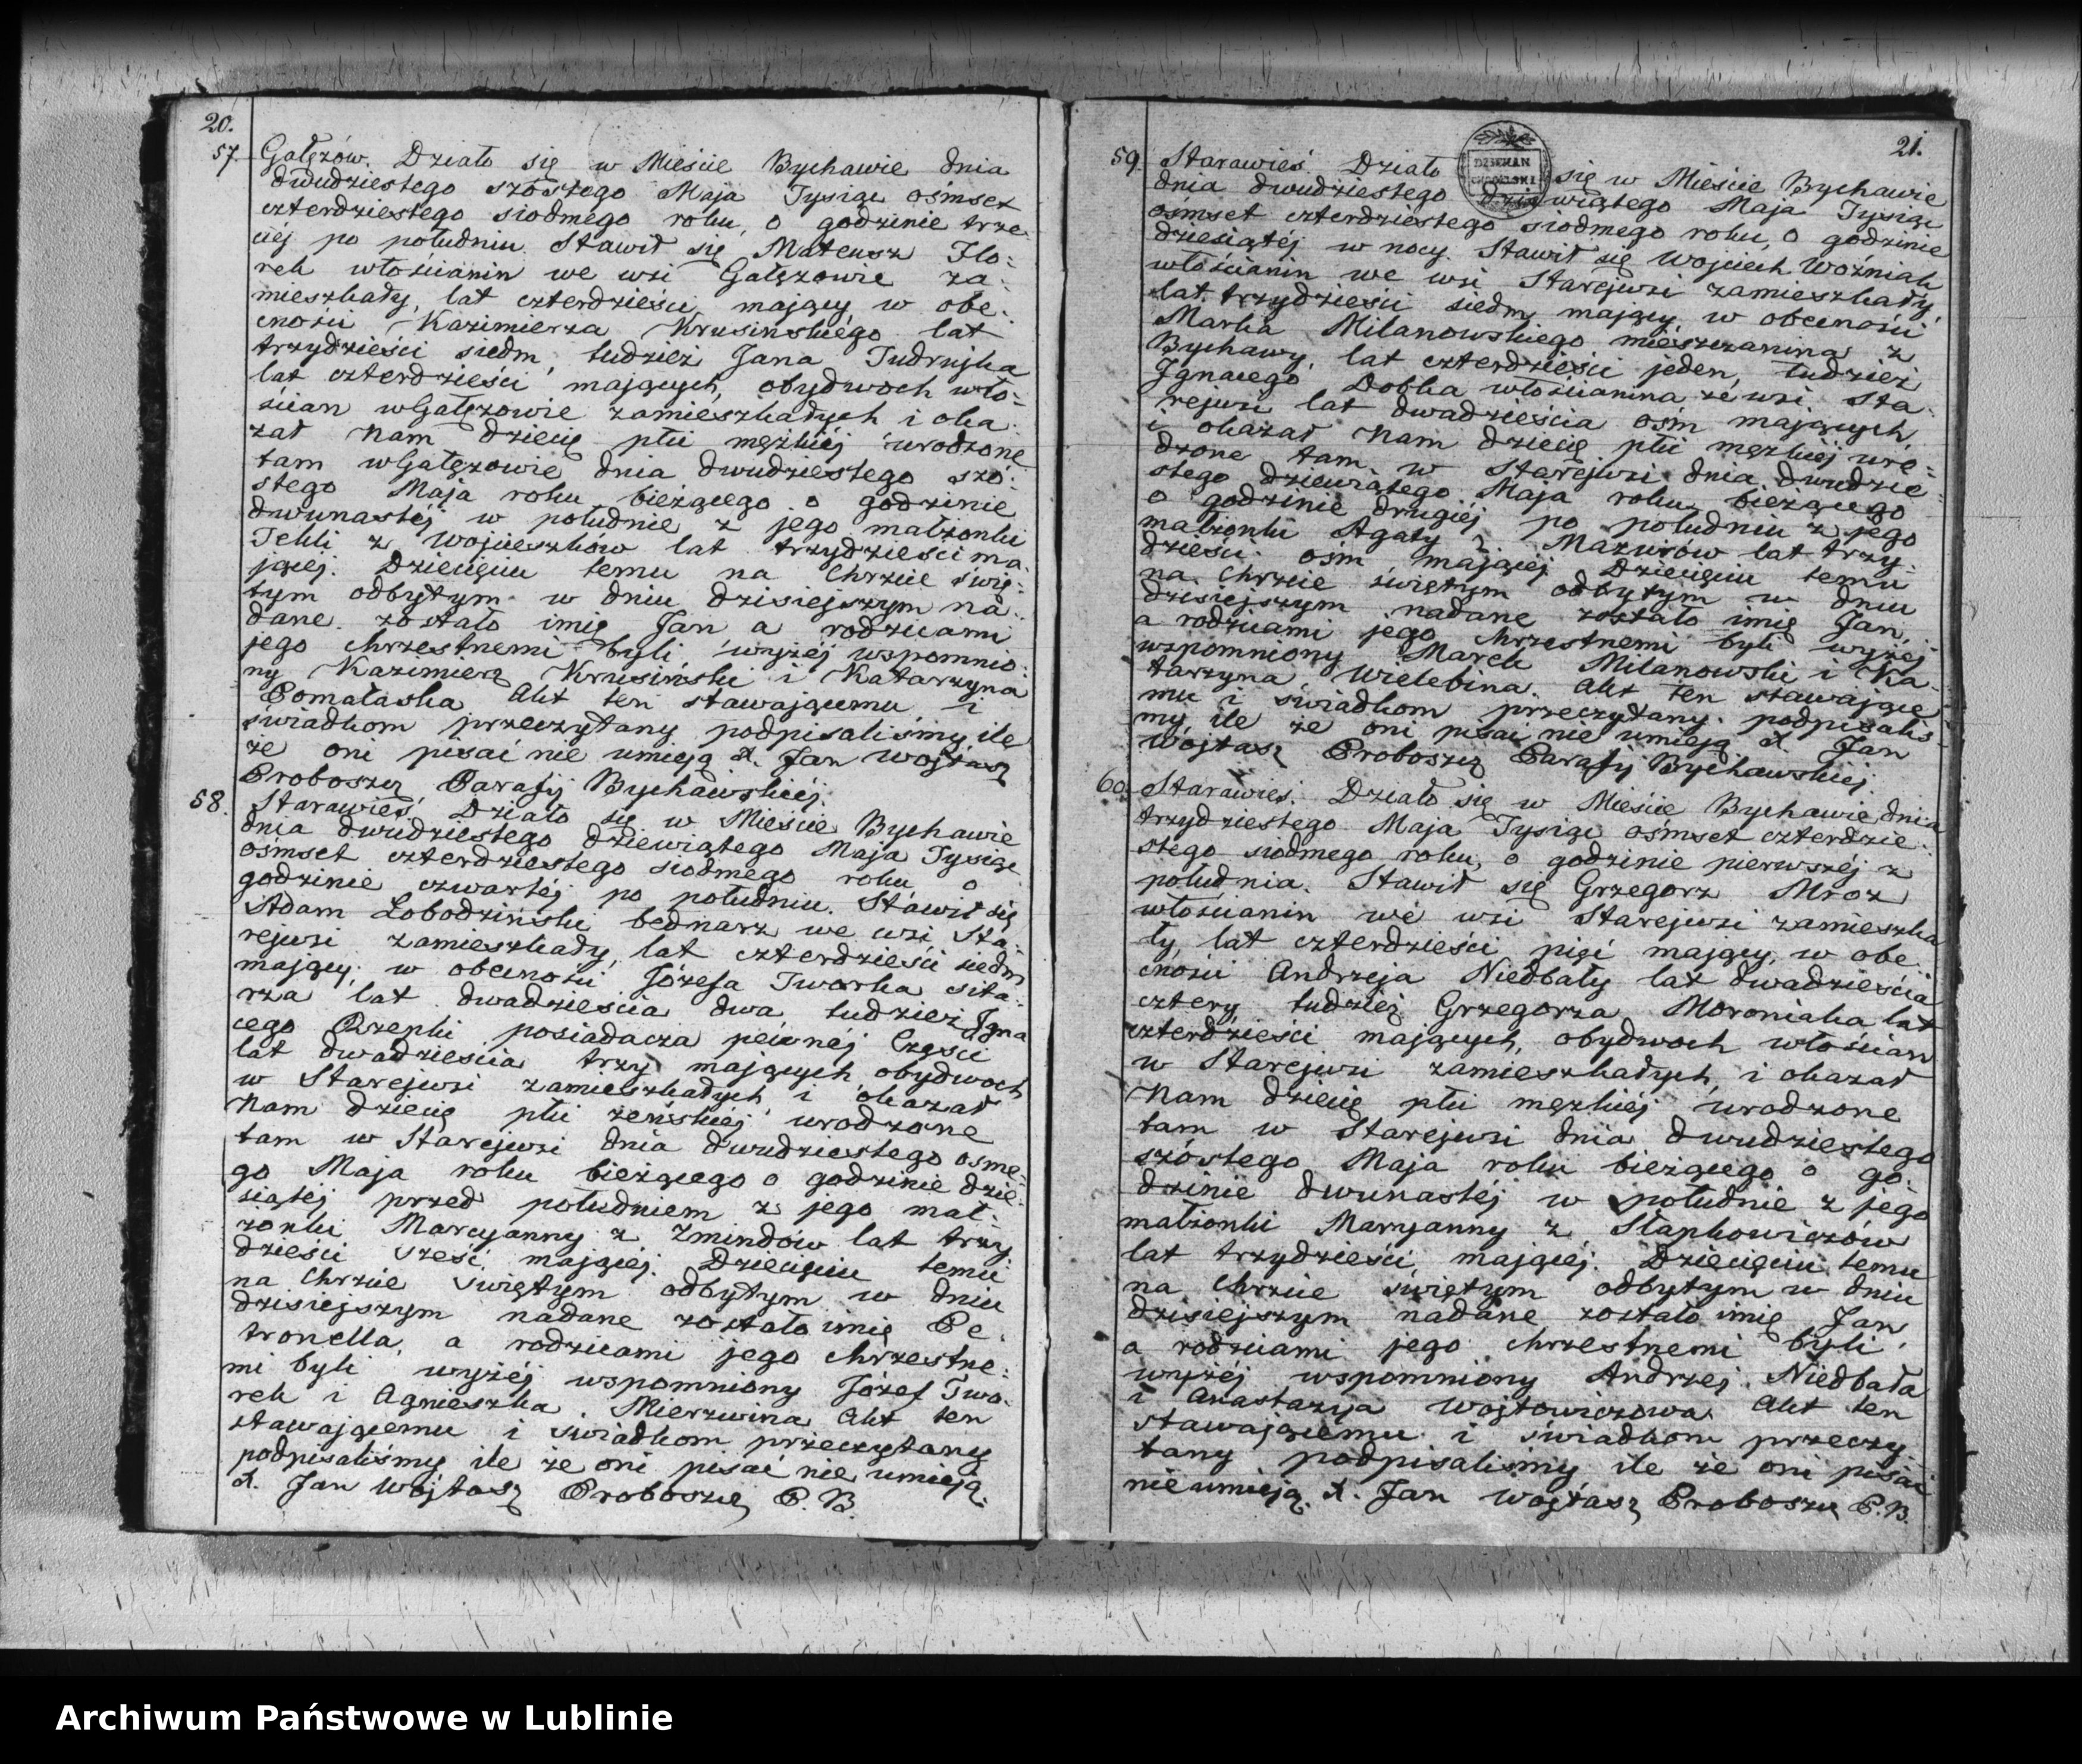 20.
57. Gałęzów. Działo się w Mieście Bychawie dnia
dwudziestego szóstego Maja Tysiąc ośmset
czterdziestego siodmego roku, o godzinie trze-
ciéj po południu. Stawił się Mateusz Flo-
rek włościanin we wsi Gałęzowie za-
mieszkały, lat czterdzieści mający, w obe-
cności Kazimierza Krusińskiego lat
trzydzieści siedm, tudzież Jana
lat czterdzieści mających, obydwoch wło-
ścian w Gałęzowie zamieszkałych i oka-
zał Nam dziecię płci męzkiéj urodzone
tam w Gałęzowie dnia dwudziestego szó-
stego Maja roku bieżącego o godzinie
dwunastéj w południe z jego małżonki
Tekli z Wojcieszków lat trzydzieści ma-
jącéj. Dziecięciu temu na Chrzcie Świę-
tym odbytym w dniu dzisiejszym na-
dane zostało imię Jan a rodzicami
jego chrzestnemi byli wyżéj wspomnio-
ny Kazimierz Krusiński i Katarzyna
Pomataska Akt ten stawającemu i
świadkom przeczytany podpisaliśmy ile
że oni pisać nie umieją X. Jan Wójtasz
Proboszcz Parafij Bychawskiéj.
58. Starawieś. Działo się w Mieście Bychawie
dnia dwudziestego dziewiątego Maja Tysiąc
ośmset czterdziestego siodmego roku o
godzinie czwartéj po południu. Stawił się
Adam Łobodziński bednarz we wsi Sta-
rejwsi zamieszkały, lat czterdzieści siedm
mający, w obecności Józefa Tworka sita-
rza lat dwadzieścia dwa tudzież Igna
cego Rzepki posiadacza pewnéj Części
lat dwadzieścia trzy mających, obydwoch
w Starejwsi zamieszkałych i okazał
Nam dziecię płci żeńskiéj urodzone
tam w Starejwsi dnia dwudziestego osme-
go Maja roku bieżącego o godzinie dzie-
siątéj przed południem z jego mał-
żonki Maryanny z Zmindów lat trzy
dzieści sześć mającéj. Dziecięciu temu
na Chrzcie Świętym odbytym w dniu
dzisiejszym nadane zostało imię Pe-
tronella, a rodzicami jego chrzestne-
mi byli wyżéj wspomniony Józef Two-
rek i Agnieszka Mierzwina Akt ten
stawającemu i świadkom przeczytany
podpisaliśmy ile że oni pisać nie umieją.
X. Jan Wójtasz Proboszcz P. B.
21.
59. Starawieś. Działo się w Mieście Bychawie
dnia dwudziestego dziewiątego Maja Tysiąc
ośmset czterdziestego siodmego roku, o godzinie
dziesiątéj w nocy. Stawił się Wojciech Woźniak
włościanin we wsi Starejwsi zamieszkały,
lat trzydzieści siedm mający w obecności
Marka Milanowskiego mieszczanina z
Bychawy, lat czterdzieści jeden, tudzież
Ignacego Dobka włościanina ze wsi Sta-
rejwsi lat dwadzieścia ośm mających,
i okazał Nam dziecię płci męzkiéj uro-
dzone tam w Starejwsi dnia dwudzie-
stego dziewiątego Maja roku bieżącego
o godzinie drugiéj po południu z jego
małżonki Agaty z Mazurów lat trzy-
dzieści ośm mającéj. Dziecięciu temu
na Chrzcie świętym odbytym w dniu
dzisiejszym nadane zostało imię Jan,
a rodzicami jego chrzestnemi byli wyżéj
wspomniony Marek Milanowski i Ka-
tarzyna Wielebina. Akt ten stawające
mu i świadkom przeczytany podpisaliś-
my, ile że oni pisać nie umieją X. Jan
Wójtasz Proboszcz Parafij Bychawskiéj.
60. Starawieś. Działo się w Mieście Bychawie dnia
trzydziestego Maja Tysiąc ośmset czterdzie-
stego siodmego roku, o godzinie pierwszéj z
południa. Stawił się Grzegorz Mroz
włościanin we wsi Starejwsi zamieszka
ły, lat czterdzieści pięć mający, w obe-
cności Andrzeja Niedbały lat dwadzieścia
cztery, tudzież Grzegorza Moroniaka lat
czterdzieści mających, obydwoch włościan
w Starejwsi zamieszkałych, i okazał
Nam dziecię płci męzkiéj urodzone
tam w Starejwsi dnia dwudziestego
szóstego Maja roku bieżącego o go-
dzinie dwunastéj w południe z jego
małżonki Maryanny z Słapkowiczów
lat trzydzieści mającéj. Dziecięciu temu
na Chrzcie świętym odbytym w dniu
dzisiejszym nadane zostało imię Jan
a rodzicami jego chrzestnemi byli
wyżéj wspomniony Andrzej Niedbała
i Anastazyja Wojtowiczowa Akt ten
stawającemu i świadkom przeczy-
tany podpisaliśmy ile że oni pisać
nie umieją. X. Jan Wójtasz Proboszcz P. B.
Archiwum Państwowe w Lublinie